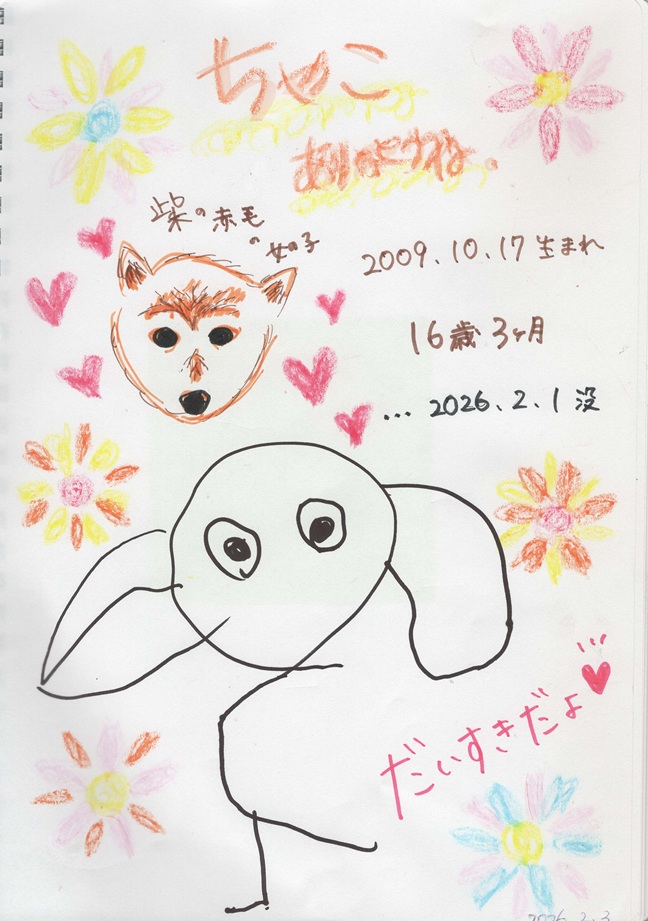 ちゃこ
ありがとうね。
柴の赤毛
の女の子
2009.10.17 生まれ
16歳3ヶ月
... 2026.2.1 没
だいすきだよ
2026.2.3